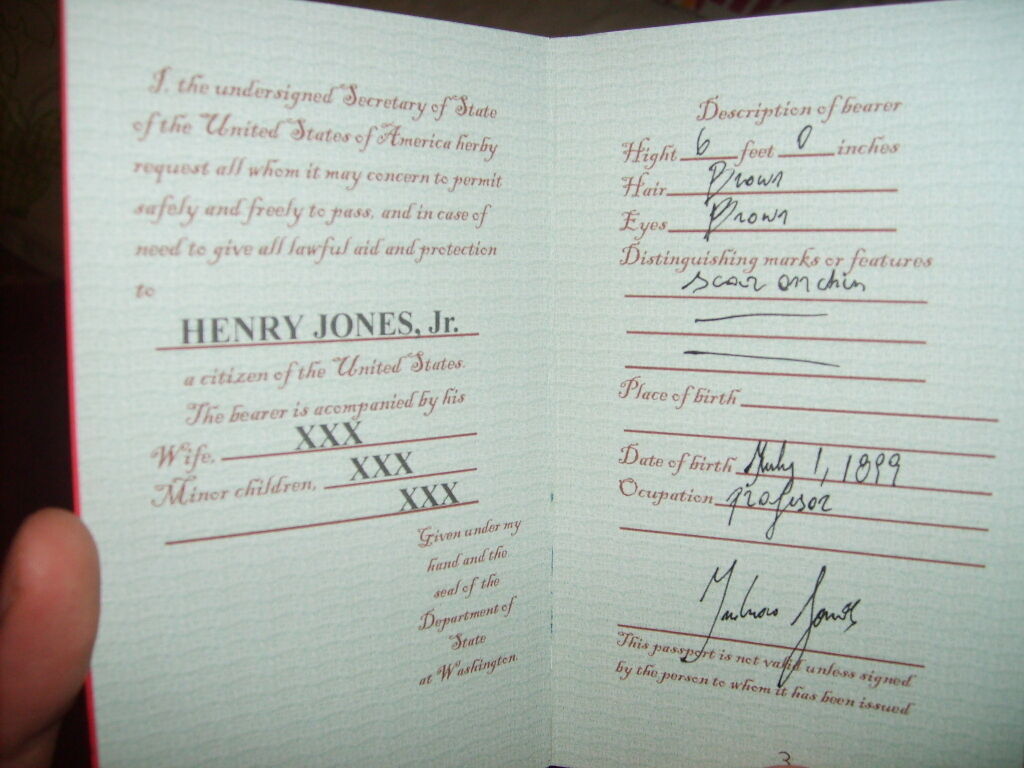 I, the undersigned Secretary of State
of the United States of America herby
request all whom it may concern to permit
safely and freely to pass, and in case of
need to give all lawful aid and protection
to
HENRY JONES, Jr.
a citizen of the United States.
The bearer is acompanied by his
Wife, XXX
Minor children, XXX
XXX
Given under my
hand and the
seal of the
Department of
State
at Washington.
Description of bearer
Hight 6 feet 0 inches
Hair Brown
Eyes Brown
Distinguishing marks or features
scar on chin
Place of birth
Date of birth July 1, 1899
Ocupation profesor
Indiana Jones
This passport is not valid unless signed
by the person to whom it has been issued
3